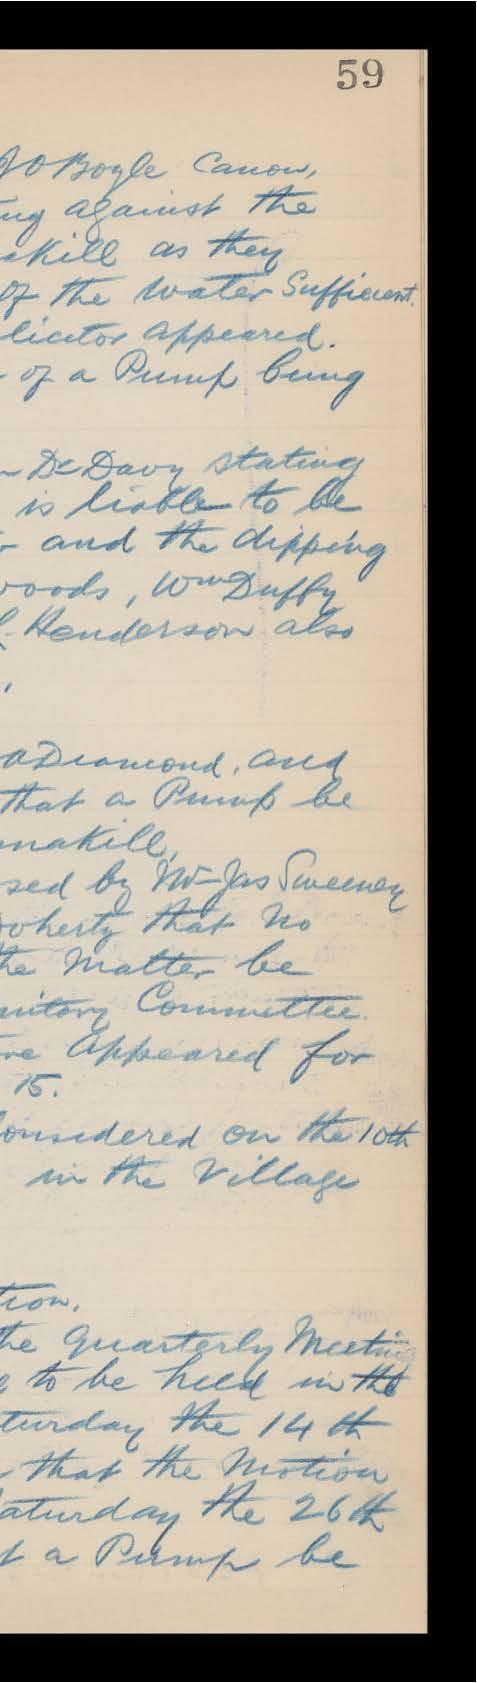 59
JO Boyle Canon,
ng against the
skill as they
of the water Sufficient.
licitor appeared.
of a Pump being
Dr Davy stating
is liable to be
and the dipping
woods, Wm Duffy
Henderson also
Diamond, and
that a Pump be
nakill,
sed by Mr Jas Sweeney
oherty that no
the Matter be
nitory Committee
re Appeared for
15.
onsidered on the 10th
in the Village
tion.
the Quarterly Meeting
to be held in the
turday the 14th
that the Motion
aturday the 26th
t a Pump be